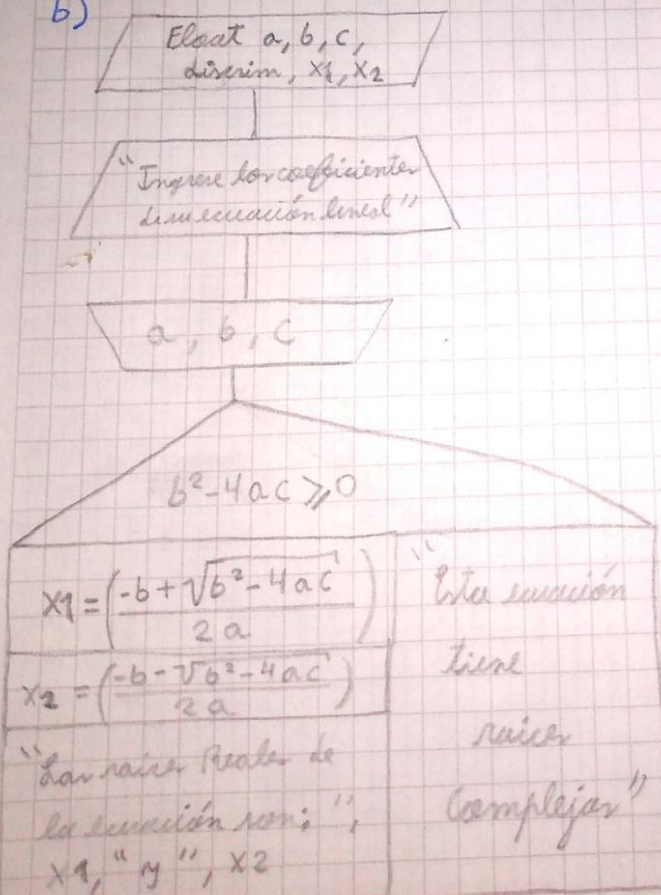 b)
Float a, b, c,
discrim, x1, x2
"Ingrese los coeficientes
de su ecuación lineal"
a, b, c
b²-4ac ⩾ 0
x1 = (-b+√b²-4ac / 2a)
x2 = (-b-√b²-4ac / 2a)
"Las raíces Reales de
la ecuación son: ",
x1, "y", x2
"Esta ecuación
tiene
raíces
Complejas"